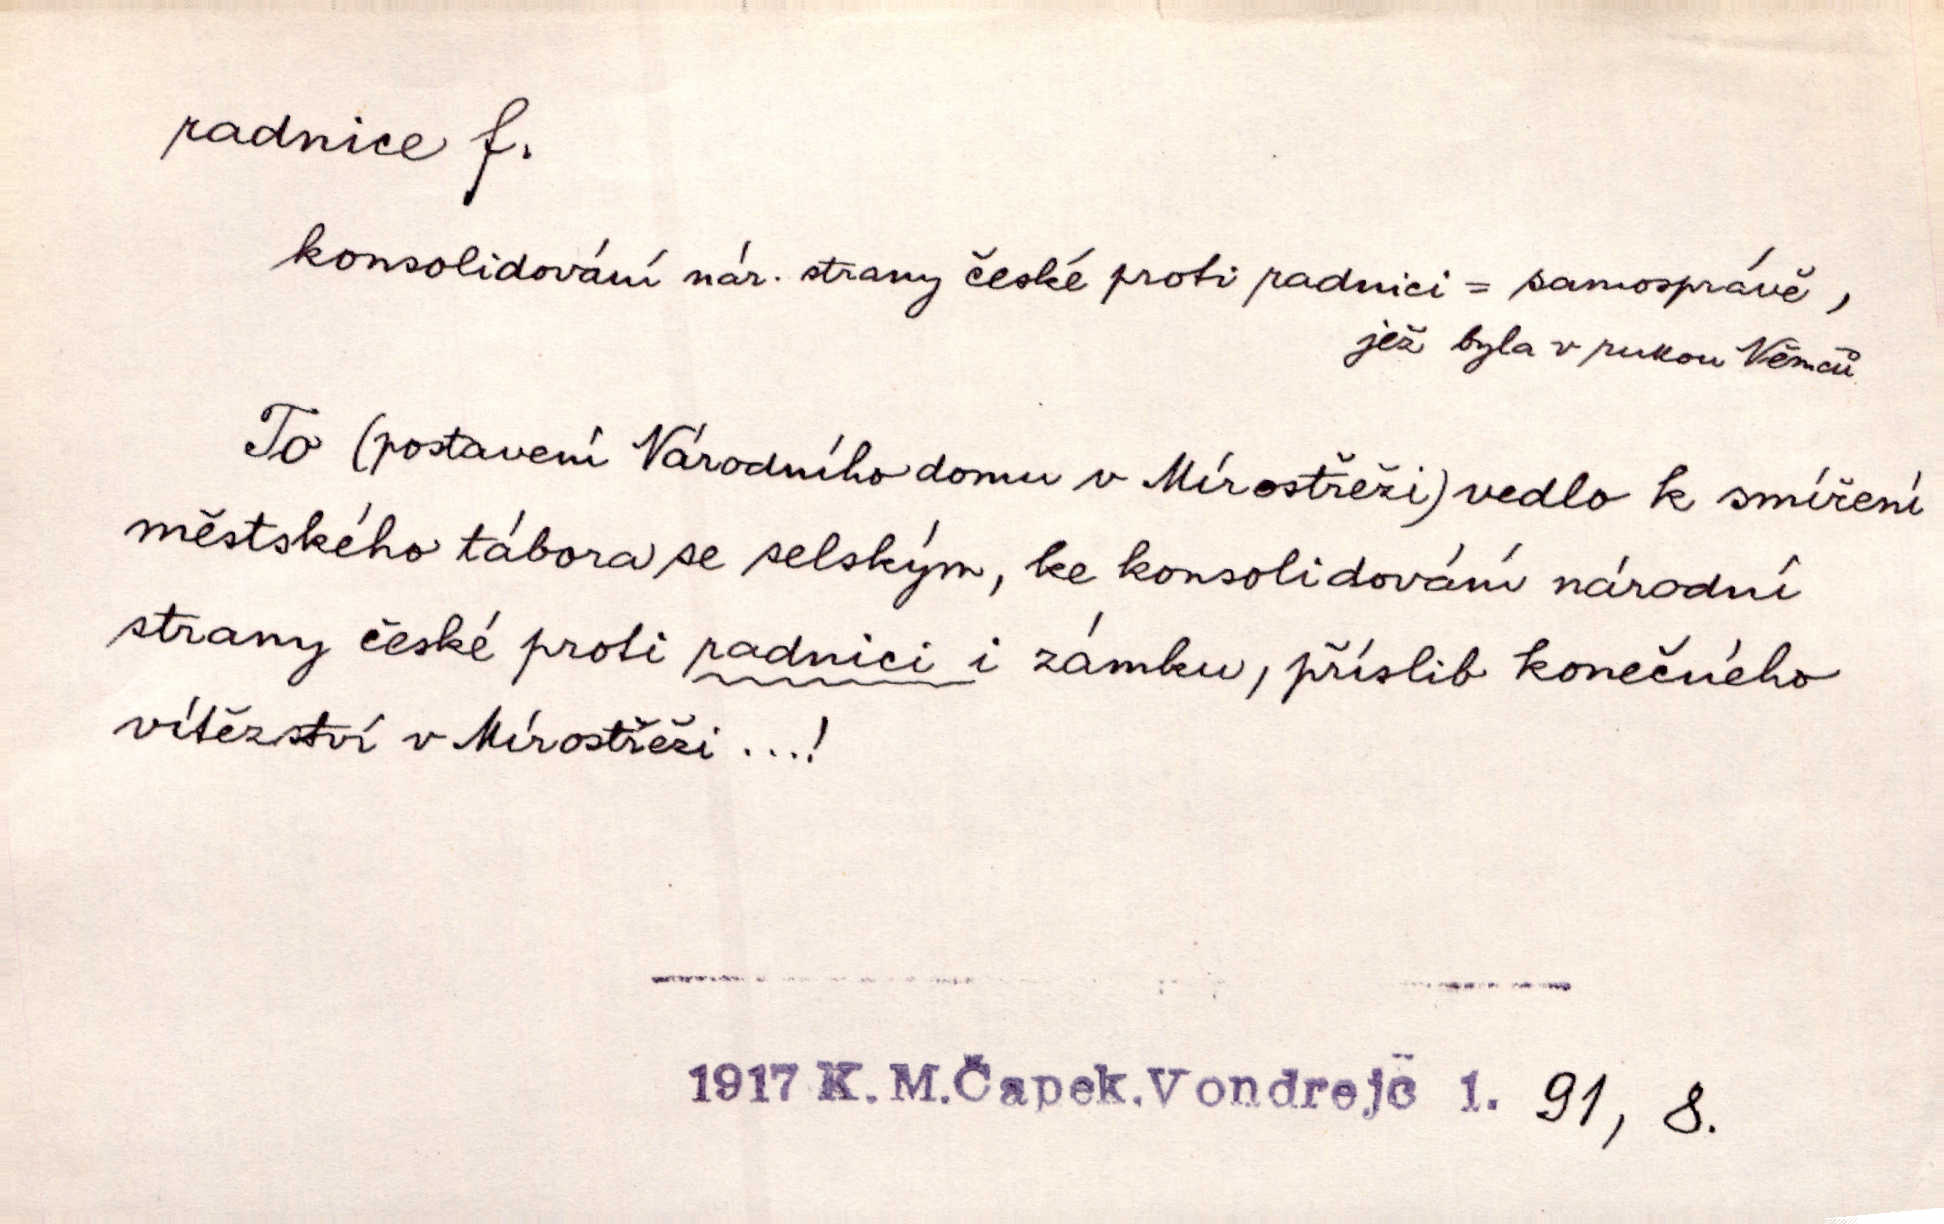 radnice f.
konsolidování nár. strany české proti radnici = samosprávě,
jež byla v rukou Němců
To (postavení Národního domu v Mírostřeži) vedlo k smíření
městského tábora se selským, ke konsolidování národní
strany české proti radnici i zámku, příslib konečného
vítězství v Mírostřeži ...!
1917 K. M. Čapek. Vondrejc 1. 91, 8.